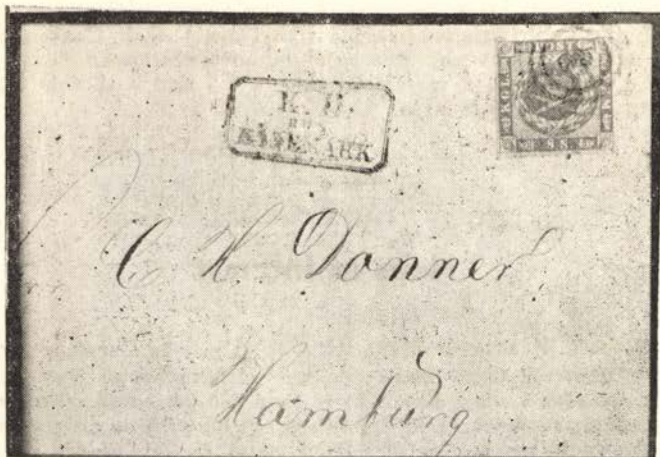 K. D.
AUS
DÄNEMARK
KGL
C H Donner
Hamburg